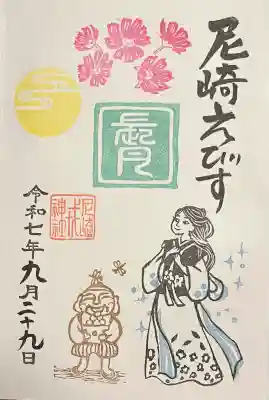 尼崎えびす
令和七年九月二十九日
尼崎
戎
神社